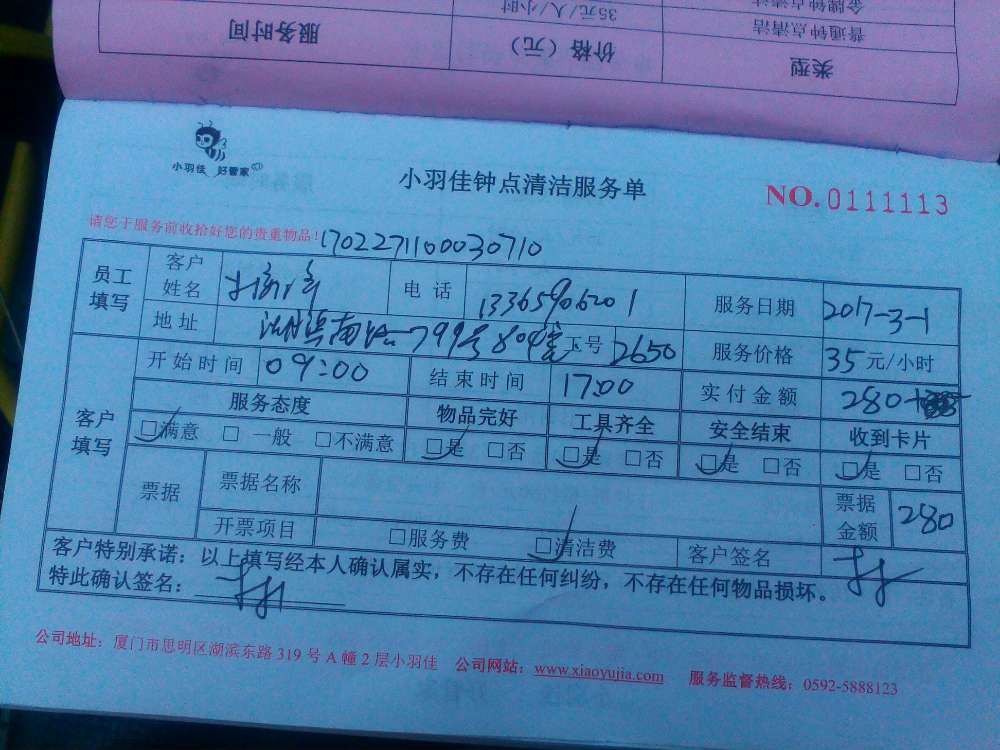 服务时间 价格（元） 类型
35元/人/小时 普通钟点清洁
金牌钟点清洁
小羽佳 好管家
小羽佳钟点清洁服务单
NO.0111113
请您于服务前收拾好您的贵重物品!
1702271100030710
员工填写
客户姓名
电话 13365906201
服务日期 2017-3-1
地址 799号804室
工号 2650
服务价格 35元/小时
客户填写
开始时间 09:00
结束时间 17:00
实付金额 280
服务态度 物品完好 工具齐全 安全结束 收到卡片
□满意 □一般 □不满意 □是 □否 □是 □否 □是 □否 □是 □否
票据 票据名称 票据金额 280
开票项目 □服务费 □清洁费 客户签名
客户特别承诺：以上填写经本人确认属实，不存在任何纠纷，不存在任何物品损坏。
特此确认签名：
公司地址：厦门市思明区湖滨东路319号A幢2层小羽佳 公司网站：www.xiaoyujia.com 服务监督热线：0592-5888123